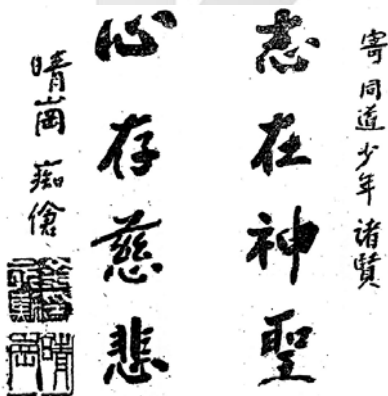 寄同道少年諸賢
志在神聖
心存慈悲
晴崗痴傖
晴崗